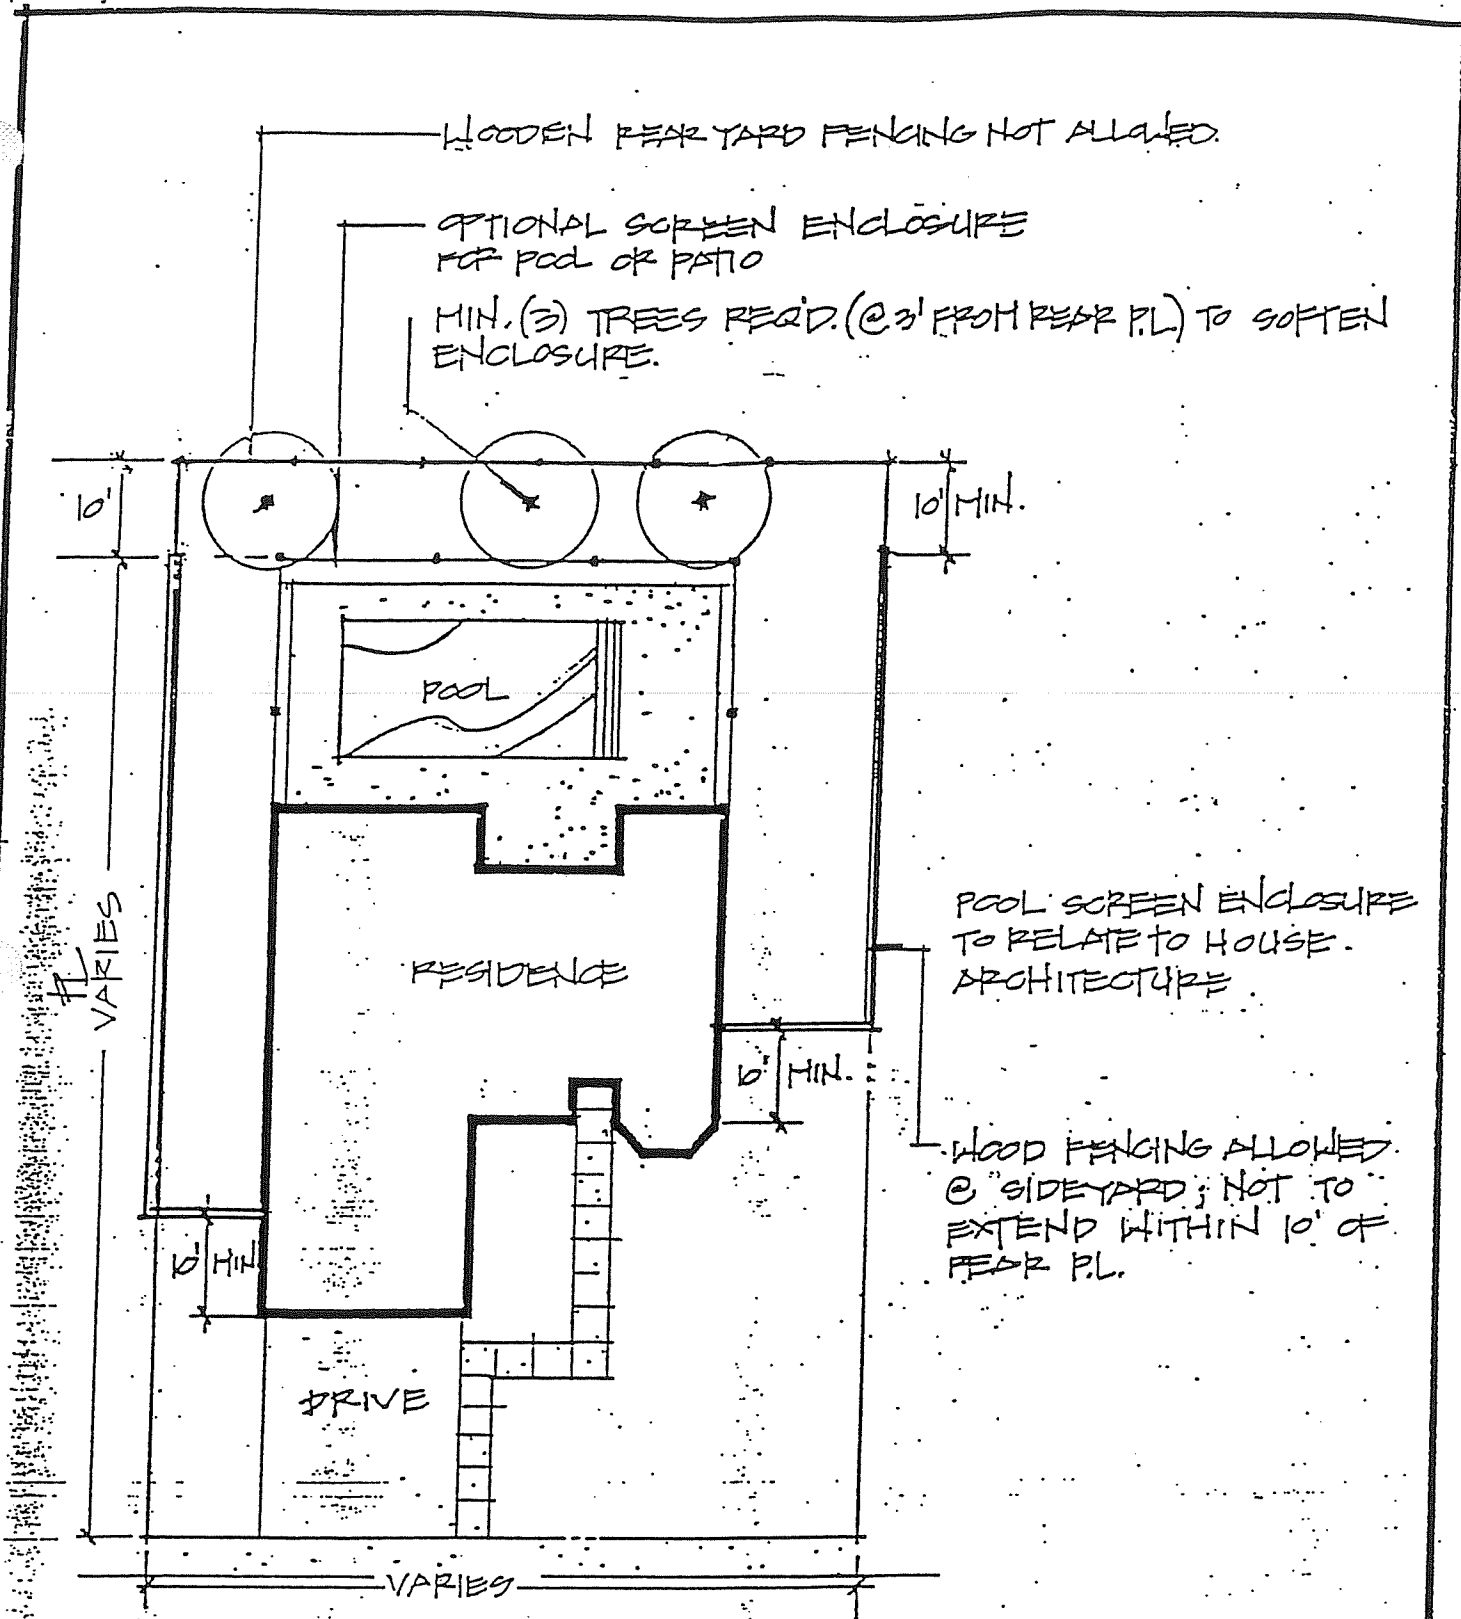 WOODEN REAR YARD FENCING NOT ALLOWED.
OPTIONAL SCREEN ENCLOSURE
FOR POOL OR PATIO
MIN. (3) TREES REQ'D. (@ 3' FROM REAR P.L.) TO SOFTEN
ENCLOSURE.
10'
10' MIN.
POOL
POOL SCREEN ENCLOSURE
TO RELATE TO HOUSE
ARCHITECTURE
RESIDENCE
PL
VARIES
6' MIN.
WOOD FENCING ALLOWED
@ SIDEYARD; NOT TO
EXTEND WITHIN 10' OF
REAR P.L.
6' MIN
DRIVE
VARIES